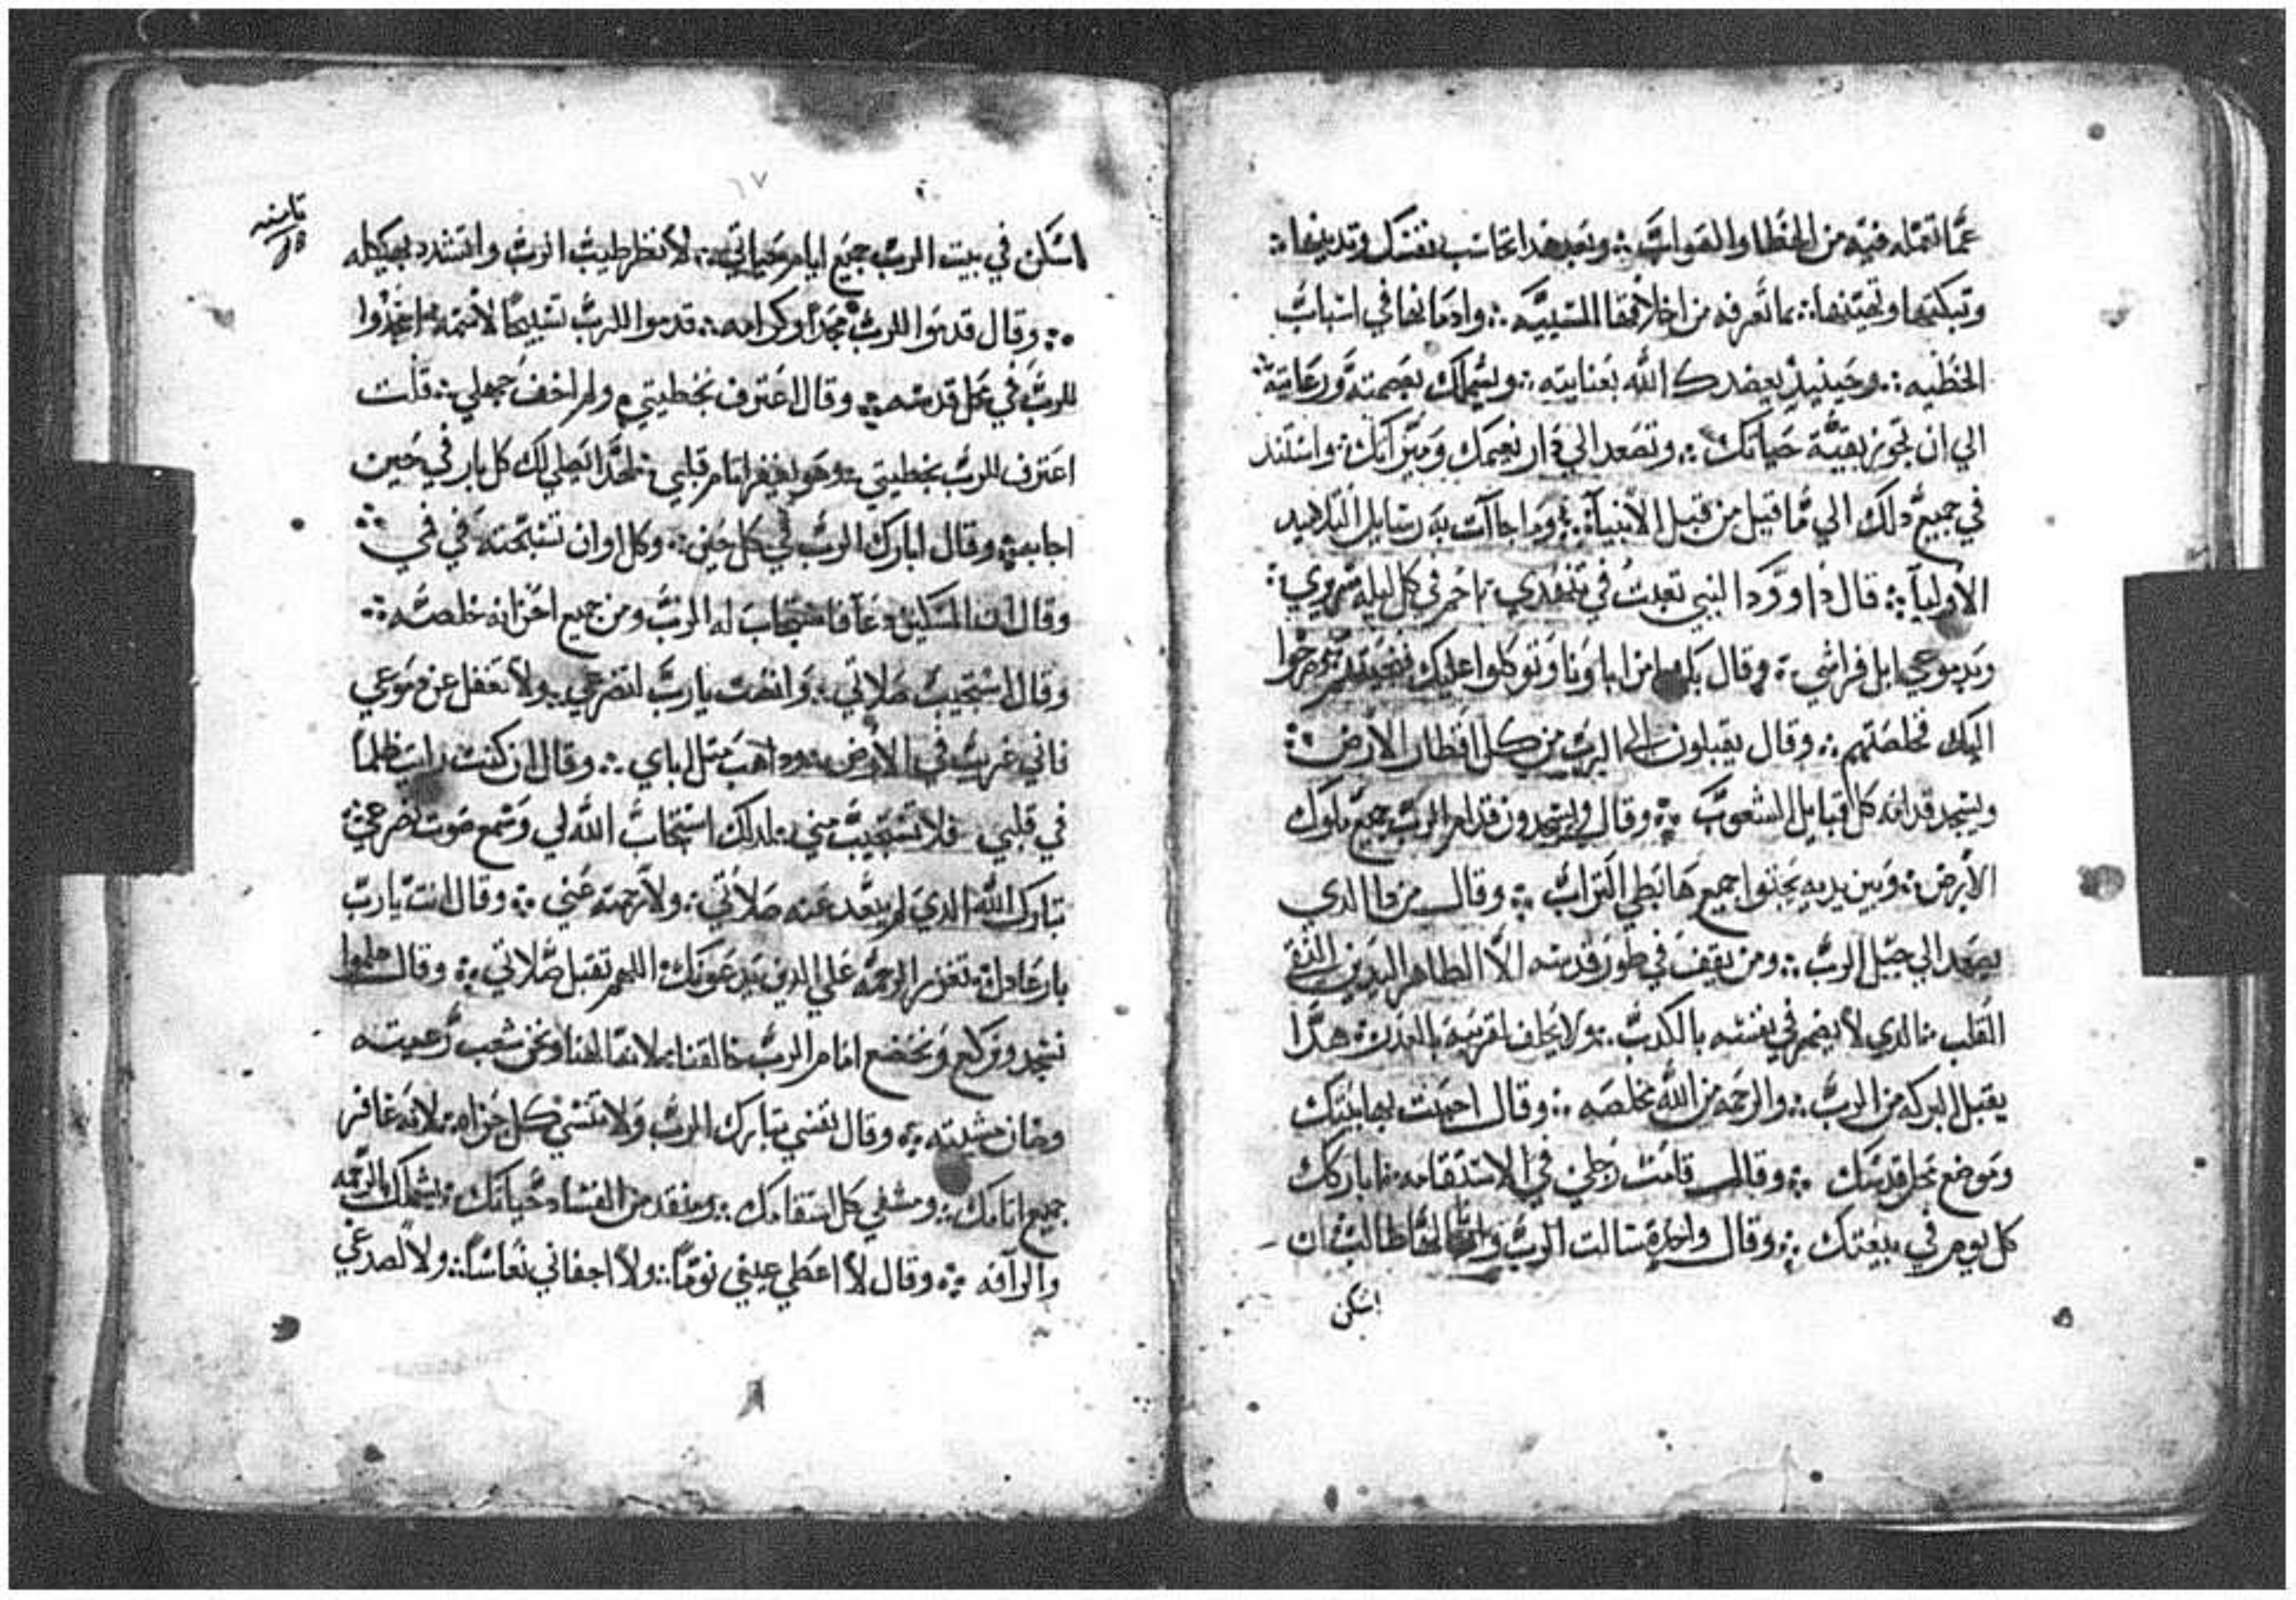 عما تعمله فيه من الخطا والهفوات ؞ وبعد هدا تحاسب نفسك وتدينها ؞
وتبكتها وتحتنها ؞ بما تعرفه من اخلاقها المسيية ؞ وادمانها في اسباب
الخطيه ؞ وحينيذ يعضدك الله بعنايته ؞ ويشملك بعصمته ورعايته ؞
الي ان تجوز بقية حياتك ؞ وتصعد الي دار نعيمك وميراتك ؞ واستند
في جميع دلك الي ما قيل من قبل الانبيآء ؞ وما جاآت به رسايل التلاميد
الاوليآ ؞ قال داوود النبي تعبت في تنهدي ؞ احمم في كل ليله سريري ؞
وبدموعي ابل فراشي ؞ وقال بك امن اباونا وتوكلوا عليك فنجيتهم صرخوا
اليك فخلصتهم ؞ وقال يقبلون الي الرب من كل اقطار الارض ؞
ويسجد قدامه كل قبايل الشعوب ؞ وقال ويسجدون قدام الرب جميع ملوك
الارض ؞ وبين يديه يجتوا جميع هابطي التراب ؞ وقال من دا الدي
يصعد الي جبل الرب ؞ ومن يقف في طور قدسه الا الطاهر اليدين النقي
القلب ؞ الدي لا يضمر في نفسه بالكدب ؞ ولا يحلف لقريبه بالغدر ؞ هدا
يقبل البركه من الرب ؞ والرحمه من الله مخلصه ؞ وقال احببت بها بيتك
وموضع محل قدسك ؞ وقال قامت رجلي في الاستقامه ؞ اباركك
كل يوم في بيعتك ؞ وقال واحدة سالت الرب واياها طالب ان
اسكن
١٧
تامنه
اسكن في بيت الرب جميع ايام حياتي ؞ لانظر طيب الرب واتشدد بهيكله
؞ وقال قدموا للرب مجدا وكرامه ؞ قدموا للرب تسبيحا لاسمه ؞ اسجدوا
للرب في محل قدسه ؞ وقال اعترف بخطيتي ولم اخف جهلي ؞ قلت
اعترف للرب بخطيتي ؞ وهو يغفر اتام قلبي ؞ لهدا يصلي لك كل بار في حين
اجابه ؞ وقال ابارك الرب في كل حين ؞ وكل اوان تسبحته في فمي ؞
وقال المسكين دعا فاستجاب له الرب ومن جميع احزانه خلصه ؞
وقال استجيب صلاتي ؞ وانصت يا رب لتضرعي ؞ ولا تغفل عن دموعي
فاني غريب في الارض ؞ وداهب متل اباي ؞ وقال ان كنت رايت ظلما
في قلبي فلا تستجيب مني ؞ لدلك استجاب الله لي وسمع صوت تضرعي ؞
تبارك الله الدي لم يبعد عنه صلاتي ؞ ولا رحمته عني ؞ وقال انت يا رب
بار عادل ؞ تغزر الرحمه علي الدين يدعونك ؞ اللهم تقبل صلاتي ؞ وقال هلموا
نسجد ونركع ونخضع امام الرب خالقنا ؞ لانه الهنا ونحن شعب رعيته
وضان مشيته ؞ وقال نفسي تبارك الرب ولا تنسي كل جزاه ؞ لانه غافر
جميع اتامك ؞ ومشفي كل اسقامك ؞ ومنقد من الفساد حياتك ؞ يشملك بالرحمه
والرآفه ؞ وقال لا اعطي عيني نوما ؞ ولا اجفاني نعاسا ؞ ولا لصدغي